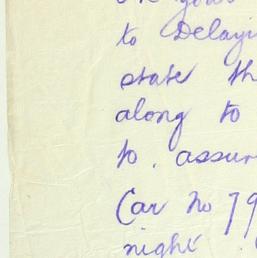 to Delayi
state th
along to
to . assur
Car No 79
night .